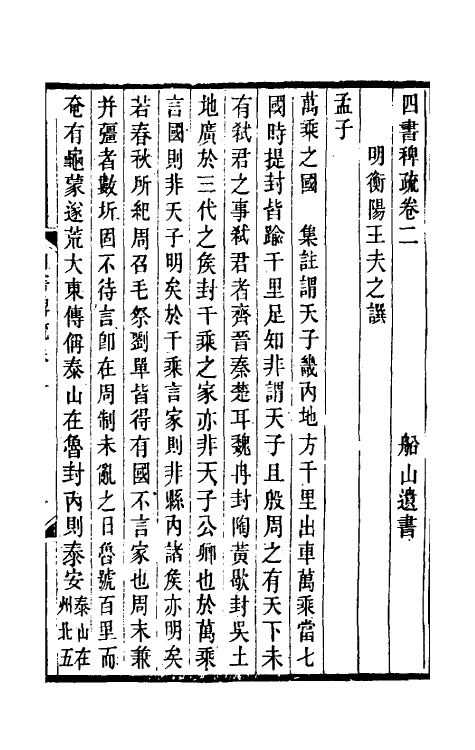 四書稗疏卷二　船山遺書
明衡陽王夫之譔
孟子
萬乘之國　集註謂天子畿內地方千里出車萬乘當七
國時提封皆踰千里足知非謂天子且殷周之有天下未
有弒君之事弒君者齊晉秦楚耳魏冉封陶黃歇封吳土
地廣於三代之矦封千乘之家亦非天子公卿也於萬乘
言國則非天子明矣於千乘言家則非縣內諸矦亦明矣
若春秋所紀周召毛祭劉單皆得有國不言家也周末兼
并彊者數圻固不待言卽在周制未亂之日魯號百里而
奄有龜蒙遂荒大東傳偁泰山在魯封內則泰安泰山在州北五